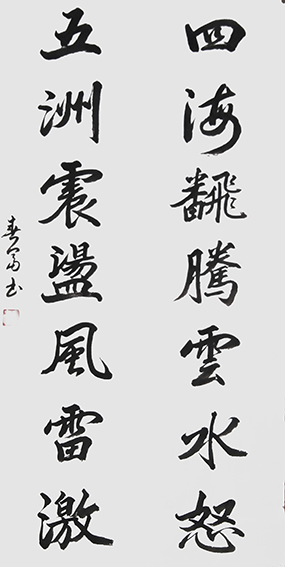 四海飜騰雲水怒
五洲震盪風雷激
春富书